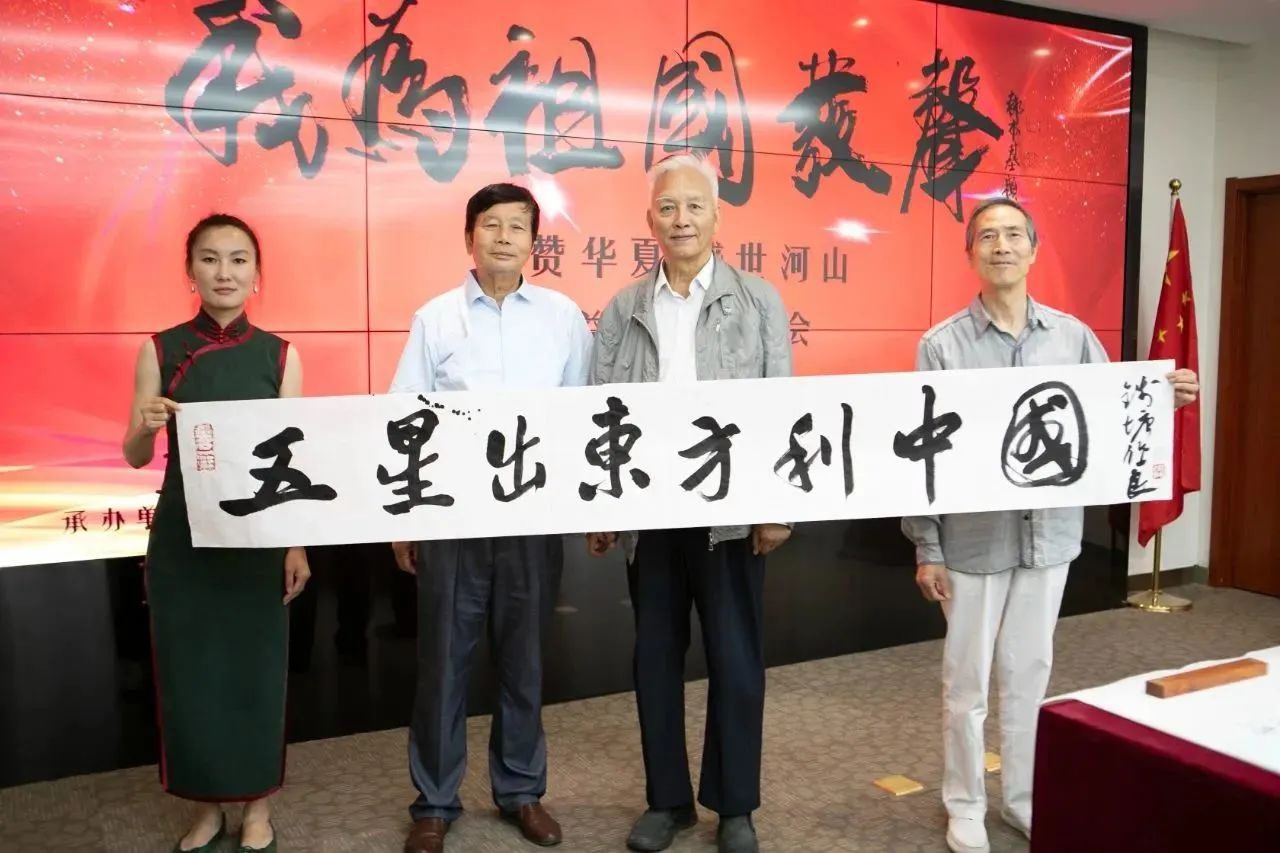 我為祖國發聲
赞华夏盛世河山
会
承办单
五星出東方利中國